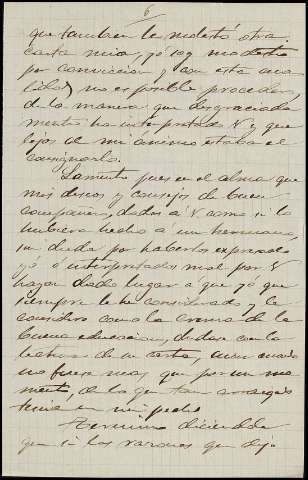 6
que tambien le molestó otra
carta mia, yó soy modesto
por conviccion y con esta cua
lidad no es posible proceder
de la manera que desgraciada
mente ha interpretado V y que
lejos de mi ánimo estaba el
consignarlo.
Lamento pues en el alma que
mis deseos y consejos de buen
compañero, dados á V como si lo
hubiera hecho á un hermano,
sin duda por haberlos expresado
yó ó interpretados mal por V
hayan dado lugar á que yó que
siempre le he considerado y le
considero como la crema de la
buena educacion, dudase con la
lectura de su carta, aun cuando
no fuese mas que por un mo
mento, de lo que tan arraigado
tenia en mi pecho
Termino diciendole
que si los varones que dejo